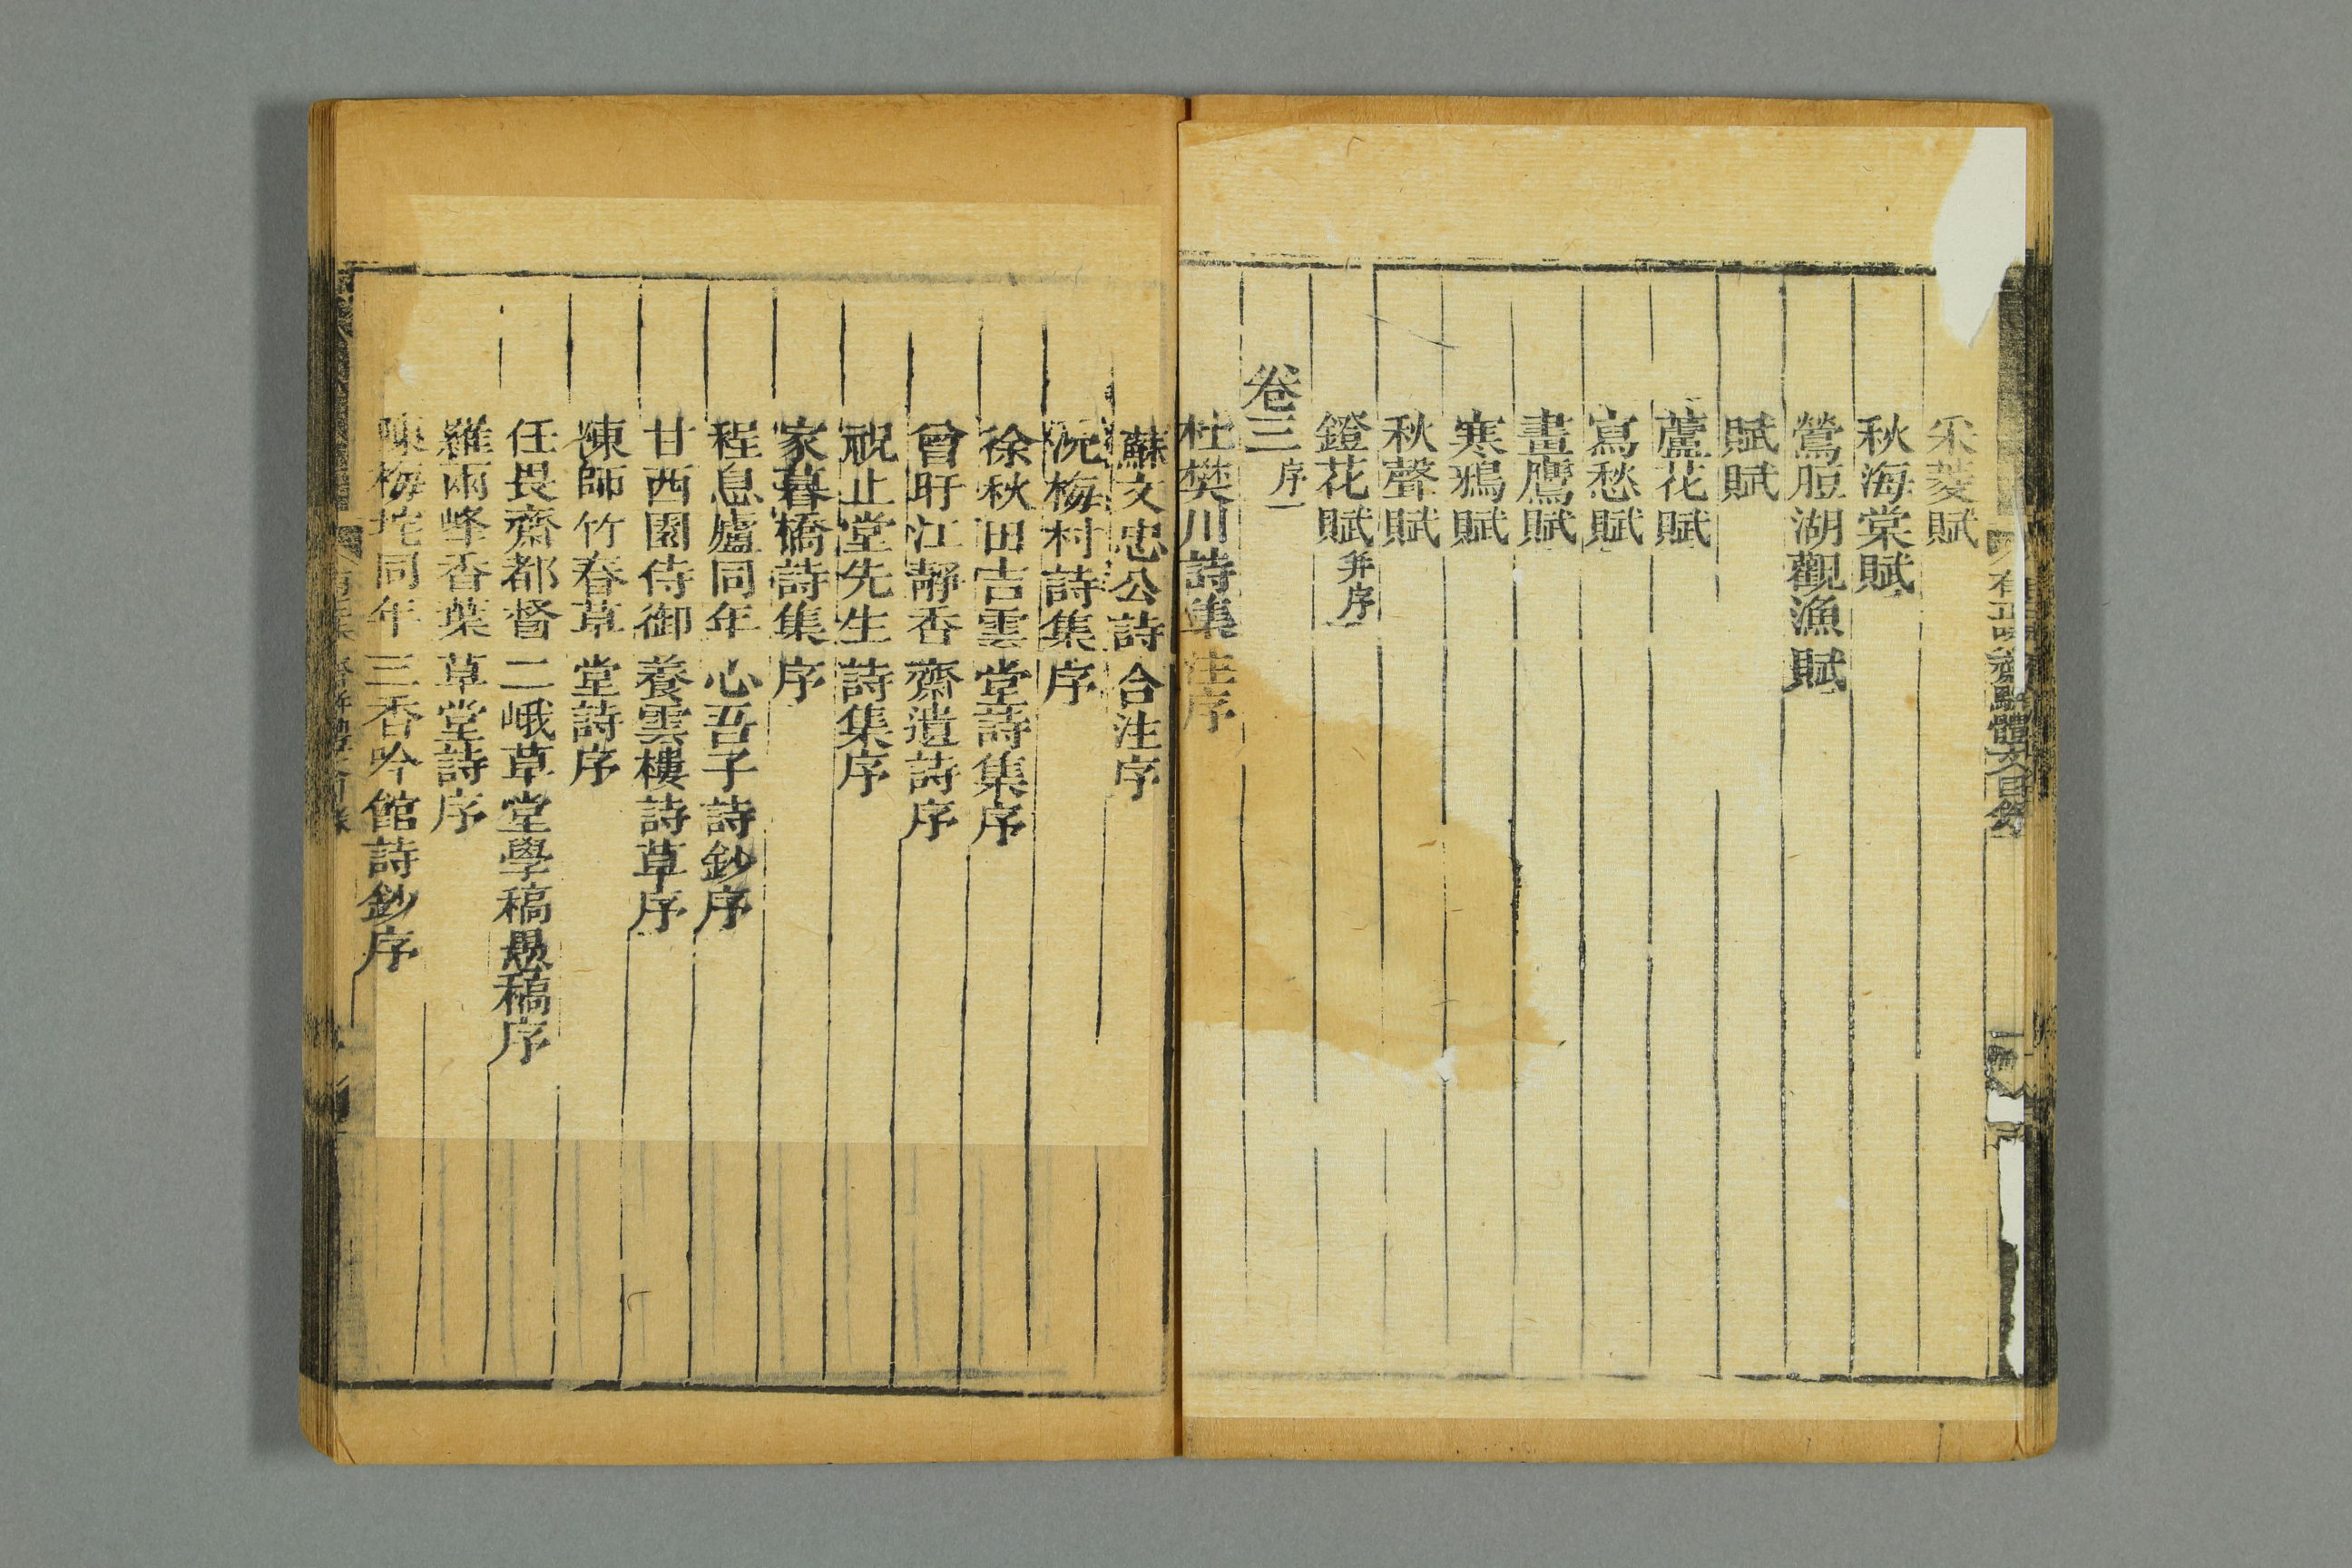 有正味齋駢體文目錄
采菱賦
秋海棠賦
鶯脰湖觀漁賦
賦賦
蘆花賦
寫愁賦
畫鷹賦
寒鴉賦
秋聲賦
鐙花賦并序
卷三序一
杜樊川詩集注序
蘇文忠公詩合注序
沉梅村詩集序
徐秋田吉雲堂詩集序
曾旴江靜香齋遺詩序
祝止堂先生詩集序
家暮橋詩集序
程息廬同年心吾子詩鈔序
甘西園侍御養雲樓詩草序
陳師竹春草堂詩序
任畏齋都督二峨草堂學稿愚稿序
羅兩峰香葉草堂詩序
陳梅坨同年三香吟館詩鈔序